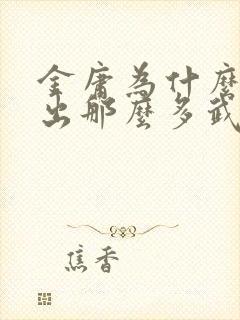 金庸為什麼
出那麼多武
焦香